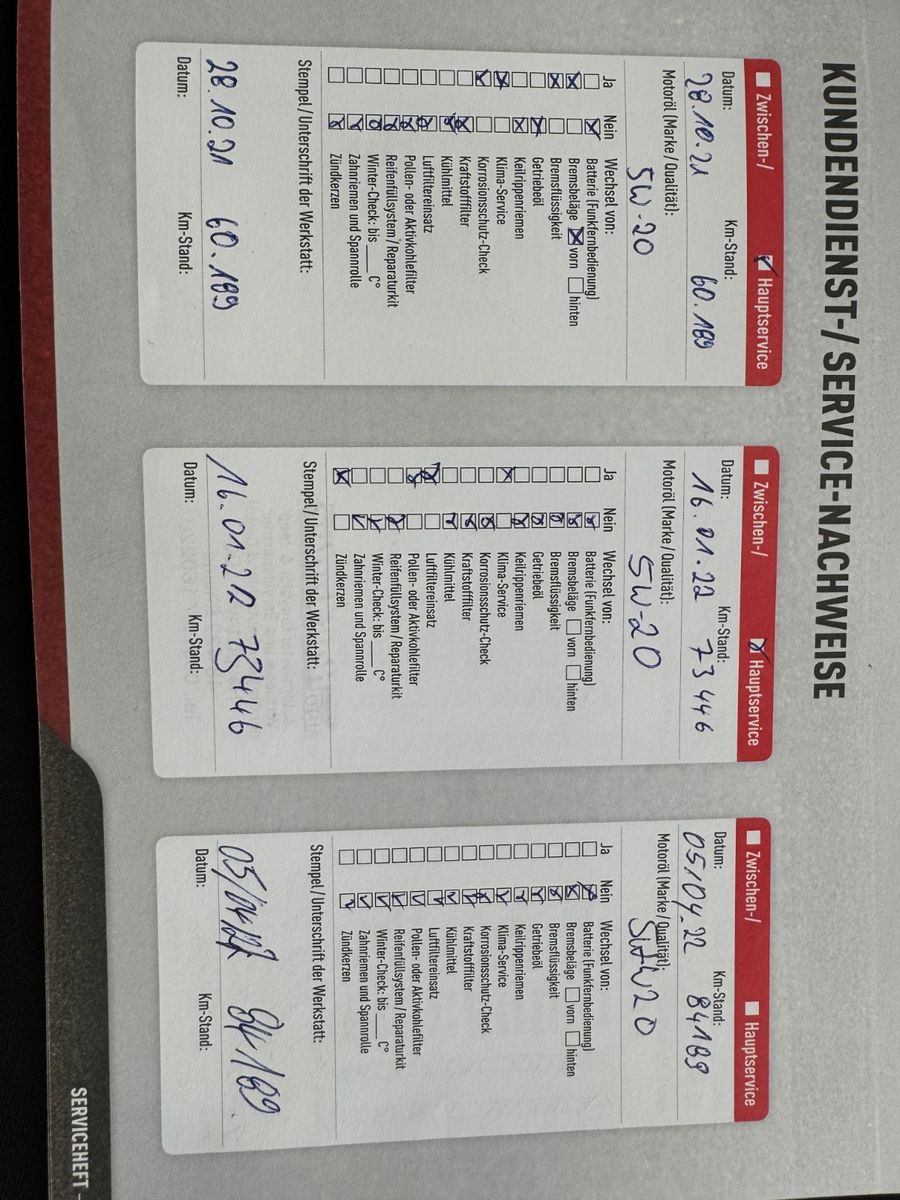 KUNDENDIENST-/ SERVICE-NACHWEISE
Zwischen-/ Hauptservice
Datum: Km-Stand:
28.10.21 60.189
Motoröl (Marke/Qualität):
5W-20
Ja Nein Wechsel von:
Batterie (Funkfernbedienung)
Bremsbeläge vorn hinten
Bremsflüssigkeit
Getriebeöl
Keilrippenriemen
Klima-Service
Korrosionsschutz-Check
Kraftstofffilter
Kühlmittel
Luftfiltereinsatz
Pollen- oder Aktivkohlefilter
Reifenfüllsystem/Reparaturkit
Winter-Check: bis ____ C°
Zahnriemen und Spannrolle
Zündkerzen
Stempel/Unterschrift der Werkstatt:
28.10.21 60.189
Datum: Km-Stand:
Zwischen-/ Hauptservice
Datum: Km-Stand:
16.01.22 73446
Motoröl (Marke/Qualität):
5W-20
Ja Nein Wechsel von:
Batterie (Funkfernbedienung)
Bremsbeläge vorn hinten
Bremsflüssigkeit
Getriebeöl
Keilrippenriemen
Klima-Service
Korrosionsschutz-Check
Kraftstofffilter
Kühlmittel
Luftfiltereinsatz
Pollen- oder Aktivkohlefilter
Reifenfüllsystem/Reparaturkit
Winter-Check: bis ____ C°
Zahnriemen und Spannrolle
Zündkerzen
Stempel/Unterschrift der Werkstatt:
16.01.22 73446
Datum: Km-Stand:
Zwischen-/ Hauptservice
Datum: Km-Stand:
05.04.22 84189
Motoröl (Marke/Qualität):
Ja Nein Wechsel von:
Batterie (Funkfernbedienung)
Bremsbeläge vorn hinten
Bremsflüssigkeit
Getriebeöl
Keilrippenriemen
Klima-Service
Korrosionsschutz-Check
Kraftstofffilter
Kühlmittel
Luftfiltereinsatz
Pollen- oder Aktivkohlefilter
Reifenfüllsystem/Reparaturkit
Winter-Check: bis ____ C°
Zahnriemen und Spannrolle
Zündkerzen
Stempel/Unterschrift der Werkstatt:
84189
Datum: Km-Stand:
SERVICEHEFT -